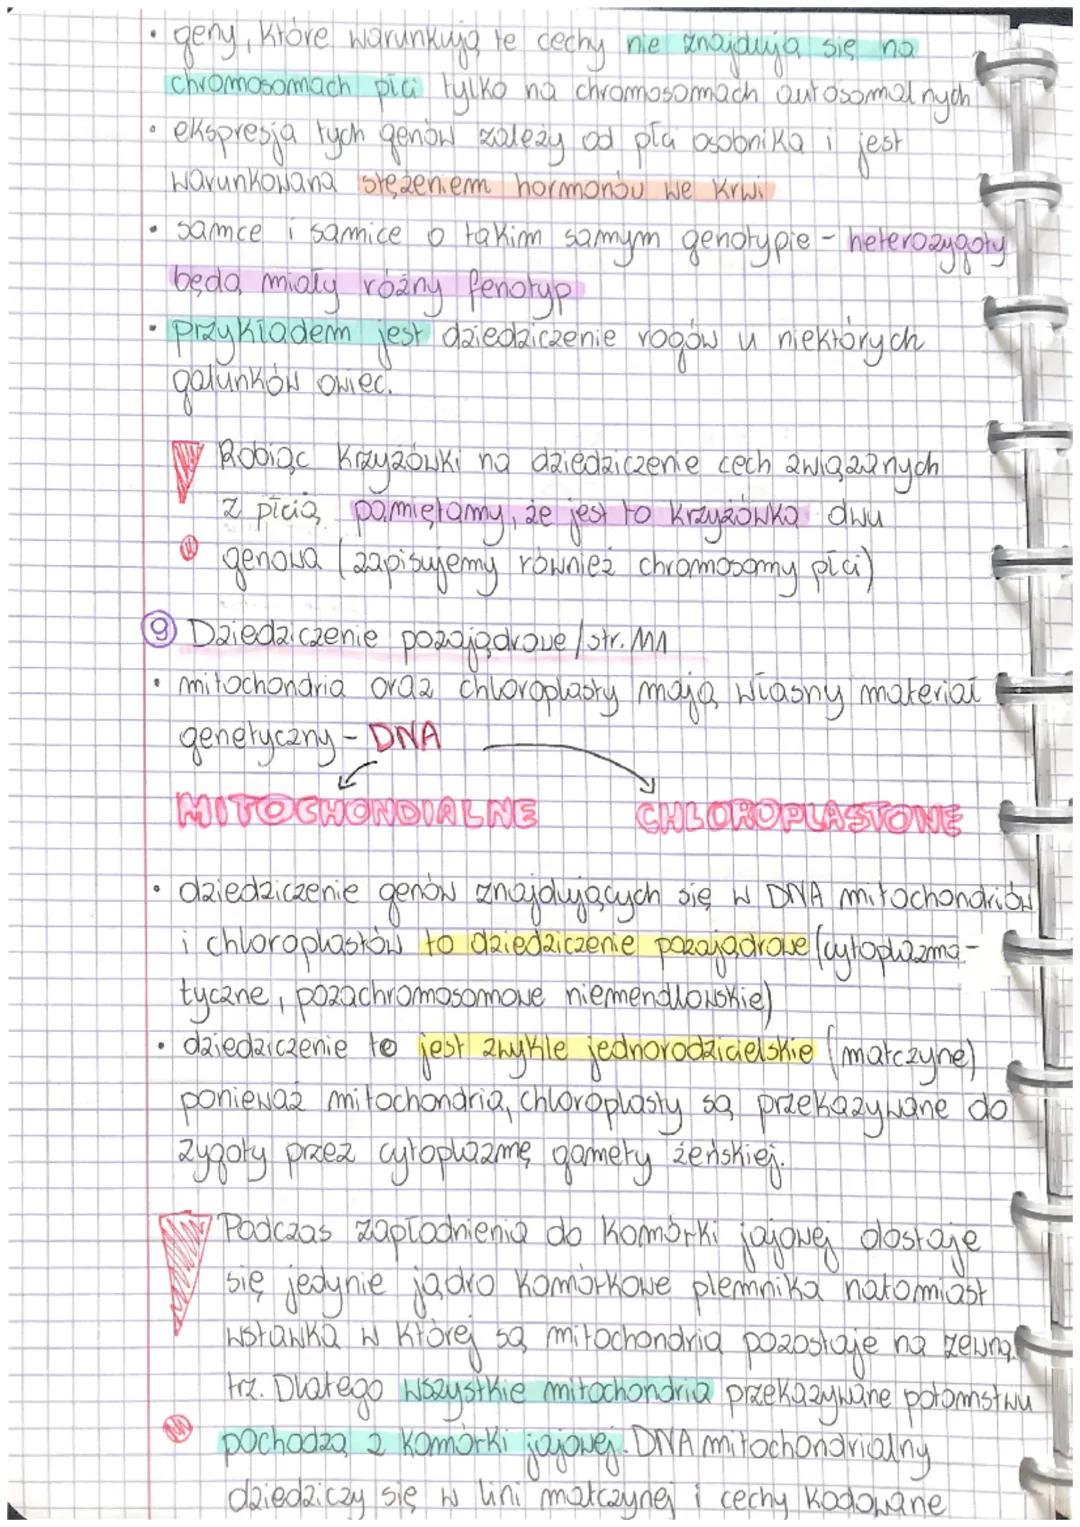 • geny, które warunkują te cechy nie znajdują się na
chromosomach płci tylko na chromosomach autosomalnych
• ekspresja tych genów zależy od płci osobnika i jest
warunkowana stężeniem hormonów we krwi
• samce i samice o takim samym genotypie - heterozygoty
będą miały różny fenotyp
• przykładem jest dziedziczenie rogów u niektórych
gatunków owiec.
Robiąc krzyżówki na dziedziczenie cech związanych
z płcią, pamiętamy, że jest to krzyżówka dwu
genowa (zapisujemy również chromosomy płci)
9 Dziedziczenie pozajądrowe / str. 111
• mitochondria oraz chloroplasty mają własny materiał
genetyczny - DNA
MITOCHONDIALNE CHLOROPLASTOWE
• dziedziczenie genów znajdujących się w DNA mitochondriów
i chloroplastów to dziedziczenie pozajądrowe (cytoplazma-
tyczne, pozachromosomowe niemendlowskie)
• dziedziczenie to jest zwykle jednorodzicielskie (matczyne)
ponieważ mitochondria, chloroplasty są przekazywane do
zygoty przez cytoplazmę gamety żeńskiej.
Podczas zapłodnienia do komórki jajowej dostaje
się jedynie jądro komórkowe plemnika natomiast
wstawka w której są mitochondria pozostaje na zewną
trz. Dlatego wszystkie mitochondria przekazywane potomstwu
pochodzą z komórki jajowej. DNA mitochondrialny
dziedziczy się w lini matczynej i cechy kodowane